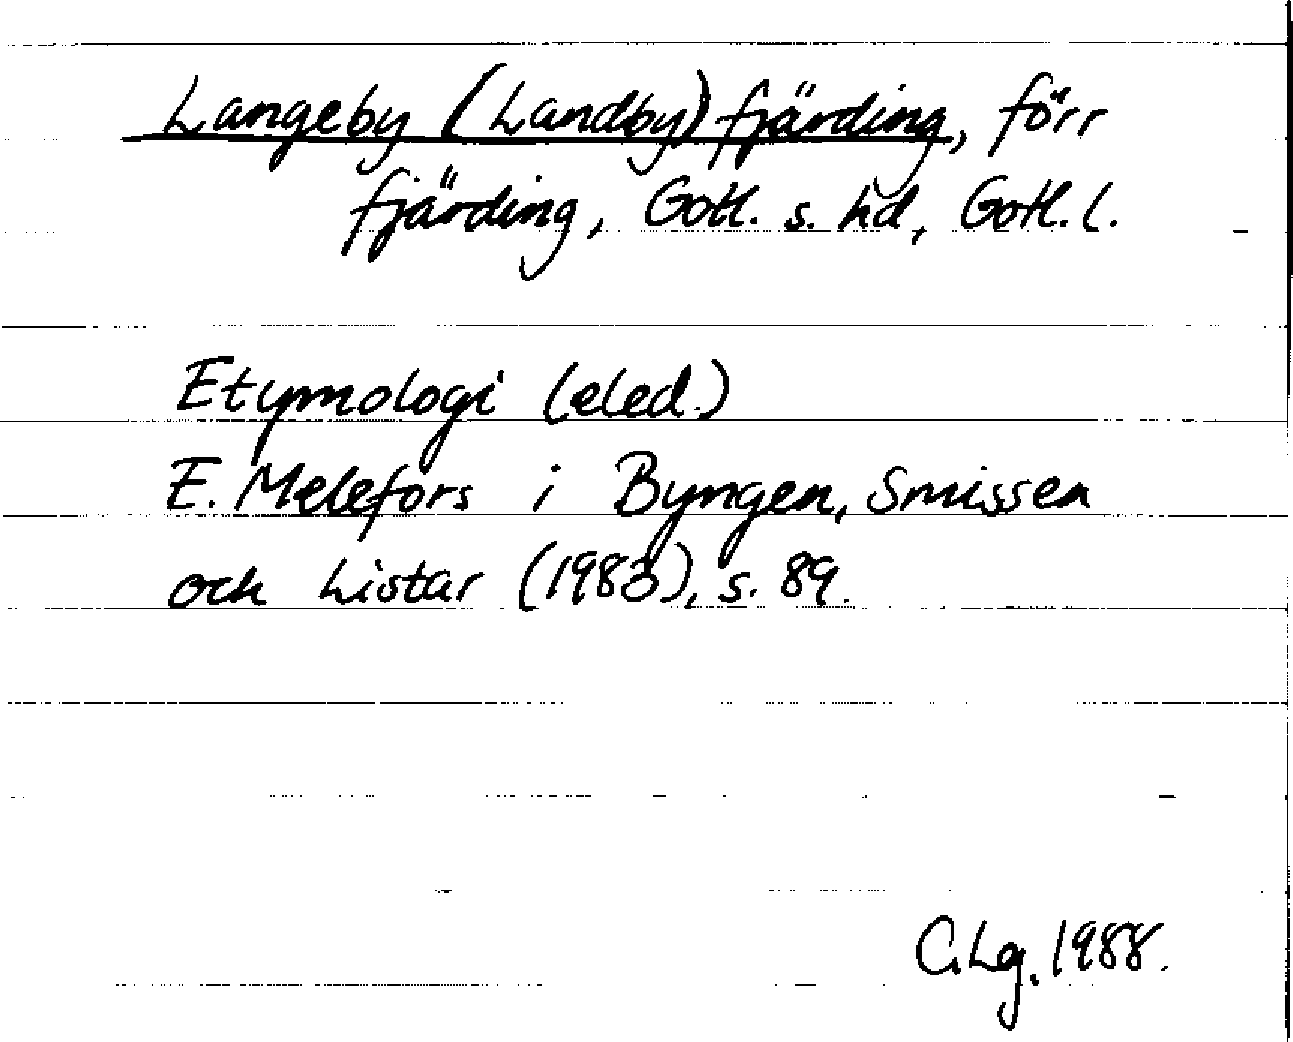 Langeby (Landby) fjärding, förr
fjärding, Gotl. s. hd, Gotl. l.
Etymologi (eled.)
E. Melefors i Byngen, Smissen
och Listar (1983), s. 89.
C.Lg. 1988.